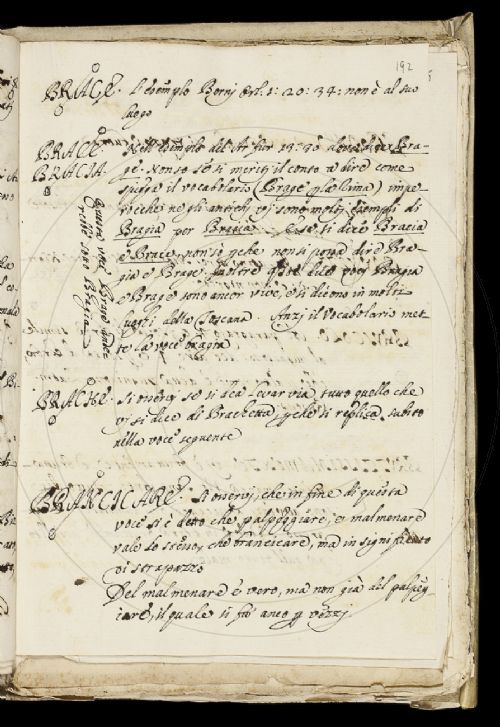 192
BRACE. L'esempio Bernj Orl. 1: 20: 34: non è al suo
luogo
BRACE Nell'esempio del Ar. fior 13: 30 dove dice Bra-
BRACIA. ge. Non so se si meriti il conto a dire come
spiega il vocabolario (Brage p la rima) impe-
rocche ne gli antichi vi sono molti esempli di
Bragia per Bracia. E se si dice Bracia
e Brace, non si pche non si possa dire Bra-
gia e Brage. Inoltre queste due voci Bragia
e Brage sono ancor vive, e si dicono in molti
luoghi della Toscana. Anzi il Vocabolario met-
te la voce bragia
questa voce Brage
sotto Bragia
BRACHE. Si osservj se si dea levar via tutto quello che
vi si dice di Brachetta, pche si replica subito
nella voce seguente
BRANCICARE. Si osservj, che in fine di questa
voce si è detto che palpeggiare, e malmenare
vale lo stesso, che brancicare, ma in significato
di strapazzo
Del malmenare è vero, ma non già del palpeg-
giare, il quale si fa anco p vezzi.